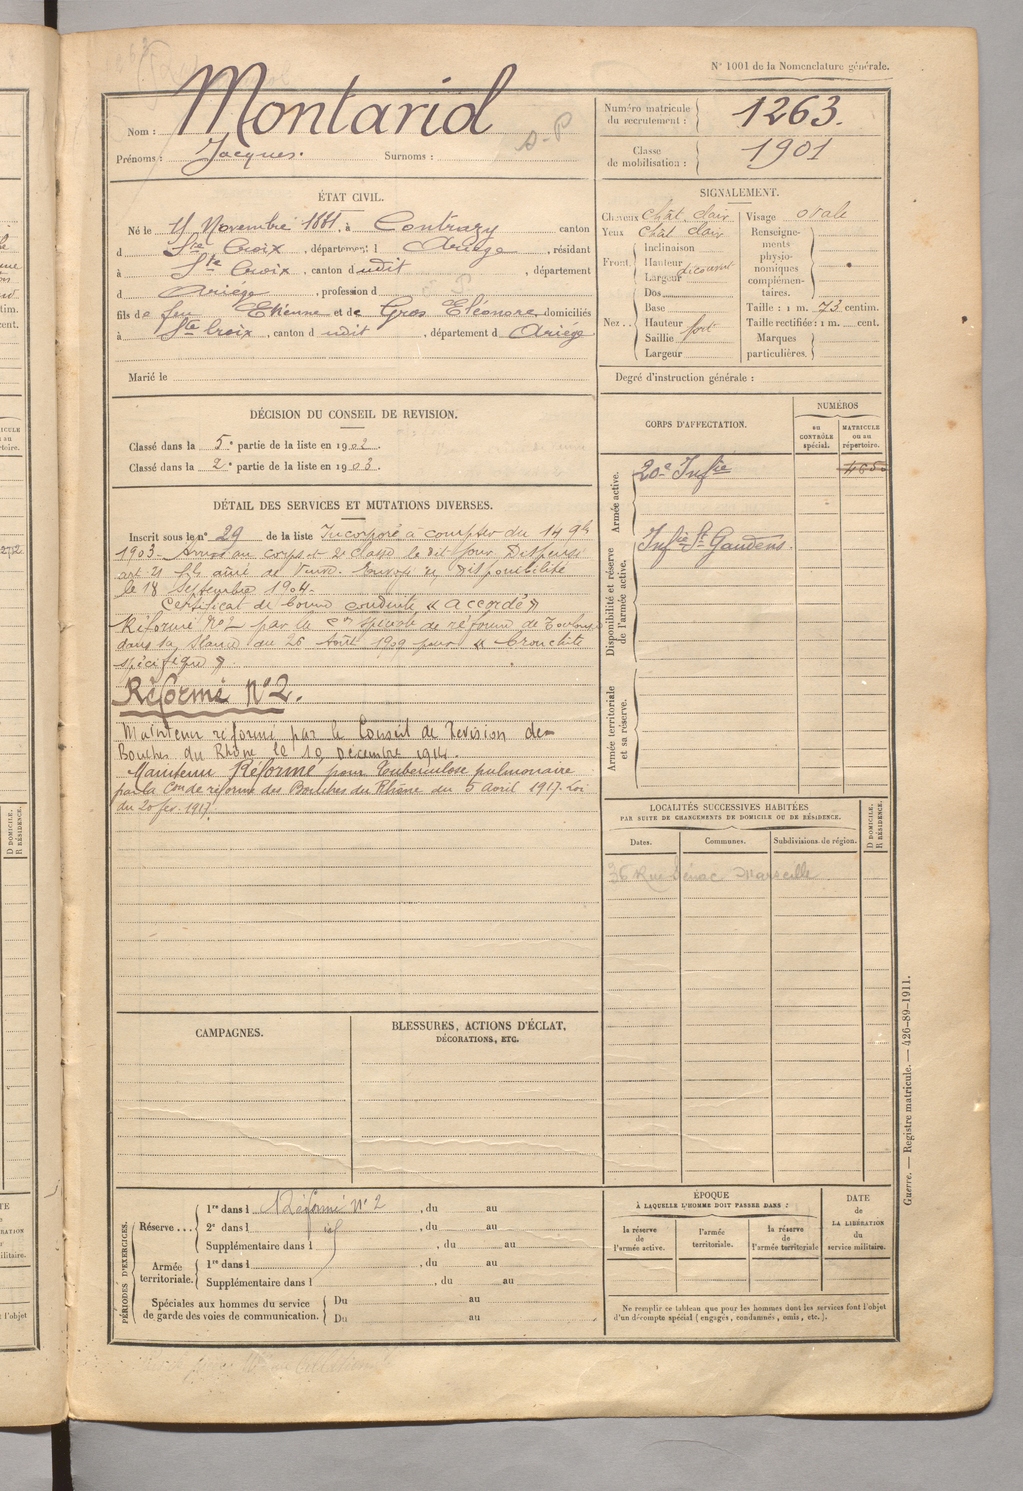 N° 1001 de la Nomenclature générale.
Nom : Montarid
Prénoms : Jacques. Surnoms :
Numéro matricule du recrutement : 1263.
Classe de mobilisation : 1901
ÉTAT CIVIL.
Né le Novembre 1881, à Contrazy canton
d Ste Croix, département d Ariège, résidant
à Ste Croix, canton dudit, département
d Ariège, profession d
fils de feu Etienne et de Gros Eléonore, domiciliés
à Ste Croix, canton dudit, département d Ariège
Marié le
SIGNALEMENT.
Cheveux chât. clair
Yeux chât clair
Front. Inclinaison
Hauteur
Largeur découvert
Nez .. Dos
Base
Hauteur
Saillie fort
Largeur
Visage ovale
Renseignements physionomiques complémentaires.
Taille : 1 m. 73 centim.
Taille rectifiée : 1 m. cent.
Marques particulières.
Degré d'instruction générale :
DÉCISION DU CONSEIL DE REVISION.
Classé dans la 5e partie de la liste en 1902.
Classé dans la 2e partie de la liste en 1903.
DÉTAIL DES SERVICES ET MUTATIONS DIVERSES.
Inscrit sous le n° 29 de la liste Incorporé à compter du 14 9bre
1903. Arrivé au corps et 2e classe le dit jour Dispensé
art 21 fils aîné de veuve. Envoyé en disponibilité
le 18 Septembre 1904.
Certificat de bonne conduite « accordé »
Réformé N°2 par la Con spéciale de réforme de Toulouse
dans sa séance du 26 Août 1909 pour « bronchite
spécifique ».
Réformé N°2.
Maintenu réformé par le Conseil de Revision des
Bouches du Rhône le 19 Décembre 1914
Maintenu Réformé pour Tuberculose pulmonaire
par la Con de réforme des Bouches du Rhône du 5 Avril 1917. Loi
du 20 fév. 1917.
CORPS D'AFFECTATION.
NUMÉROS
au CONTRÔLE spécial.
MATRICULE ou au répertoire.
Armée active.
20e Infie
Disponibilité et réserve de l'armée active.
Infie St Gaudens.
Armée territoriale et sa réserve.
LOCALITÉS SUCCESSIVES HABITÉES
PAR SUITE DE CHANGEMENTS DE DOMICILE OU DE RÉSIDENCE.
D DOMICILE.
R RÉSIDENCE.
Dates. Communes. Subdivisions de région.
36 Rue Sénac Marseille
CAMPAGNES.
BLESSURES, ACTIONS D'ÉCLAT,
DÉCORATIONS, ETC.
PÉRIODES D'EXERCICES.
Réserve ... 1re dans l Réformé N° 2, du au
2e dans l , du au
Supplémentaire dans l , du au
Armée territoriale. 1re dans l , du au
Supplémentaire dans l , du au
Spéciales aux hommes du service de garde des voies de communication. Du au
Du au
ÉPOQUE
À LAQUELLE L'HOMME DOIT PASSER DANS :
la réserve de l'armée active.
l'armée territoriale.
la réserve de l'armée territoriale
DATE
DE LA LIBÉRATION
du service militaire.
Ne remplir ce tableau que pour les hommes dont les services font l'objet
d'un décompte spécial (engagés, condamnés, omis, etc.).
Guerre. — Registre matricule. — 426-89-1911.